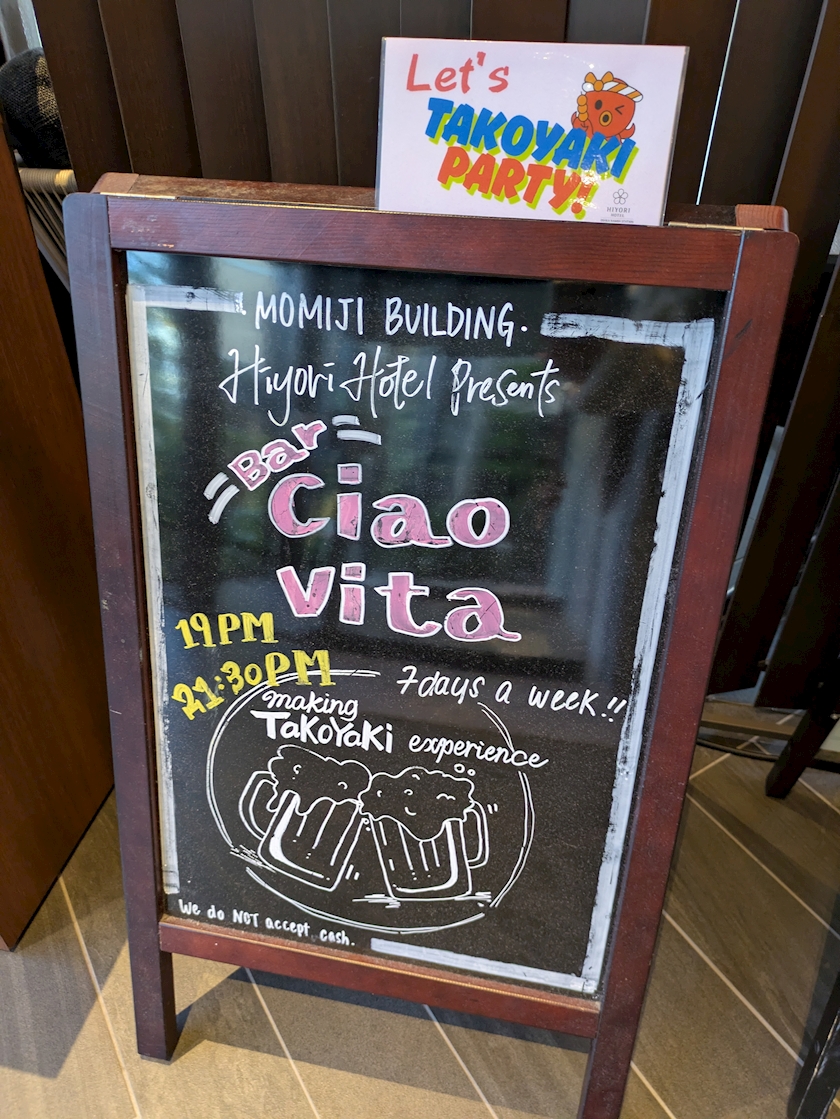 Let's
TAKOYAKI
PARTY!
HIYORI
HOTEL
MOMIJI BUILDING.
Hiyori Hotel Presents
Bar
Ciao
vita
19PM
21:30PM
7days a week!!
making
TaKoYaKi experience
We do NOT accept cash.